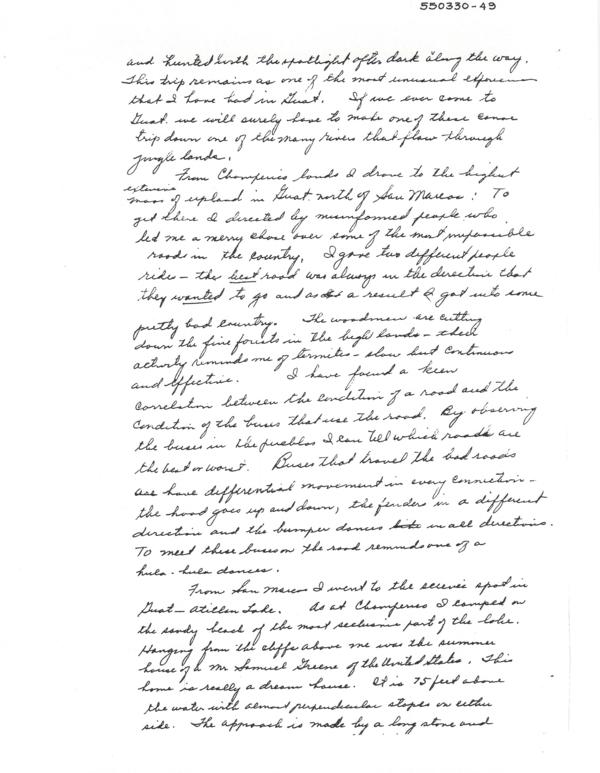 550330-49
and "hunted" with the spotlight after dark along the way.
This trip remains as one of the most unusual experiences
that I have had in Guat. If we ever come to
Guat. we will surely have to make one of these canoe
trip down one of the many rivers that flow through
jungle lands.
From Champerico lands I drove to the highest
extensive
mass of upland in Guat. north of San Marcos: To
get there I directed by misinformed people who
led me a merry chase over some of the most impossible
roads in the country. I gave two different people
rides - the best road was always in the direction that
they wanted to go and as a result I got into some
pretty bad country. The woodmen are cutting
down the fine forests in the high lands - their
activity reminds me of termites - slow but continuous
and effective. I have found a keen
correlation between the condition of a road and the
condition of the buses that use the road. By observing
the buses in the pueblos I can tell which roads are
the best or worst. Buses that travel the bad roads
have differential movement in every connection -
the hood goes up and down, the fenders in a different
direction and the bumper dances in all directions.
To meet these buses on the road reminds one of a
hula-hula dancer.
From San Marcos I went to the scenic spot in
Guat - Atitlan Lake. As at Champerico I camped on
the sandy beach of the most seclusive part of the lake.
Hanging from the cliffs above me was the summer
house of a Mr Samuel Greene of the United States. This
home is really a dream house. It is 75 feet above
the water with almost perpendicular slopes on either
side. The approach is made by a long stone and